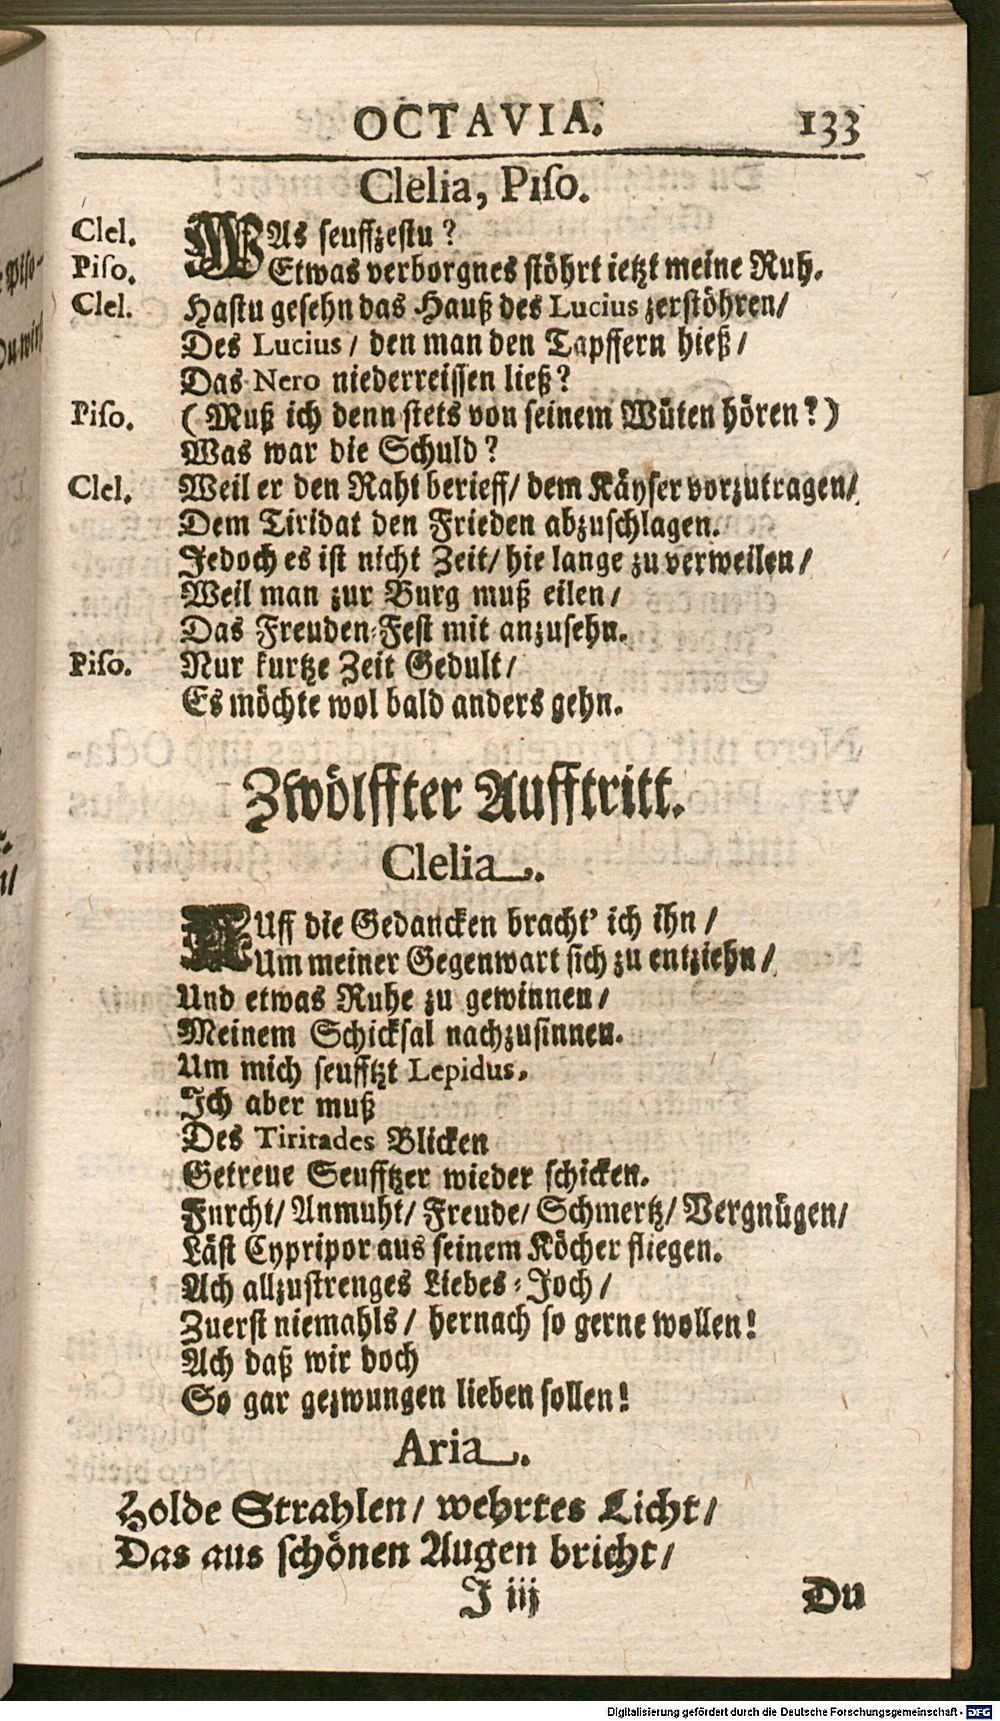 OCTAVIA. 133
Clelia, Piſo.
Clel. WAs ſeuffzeſtu?
Piſo. Etwas verborgnes ſtöhrt ietzt meine Ruh.
Clel. Haſtu geſehn das Hauß des Lucius zerſtöhren/
Des Lucius / den man den Tapffern hieß /
Das Nero niederreiſſen ließ?
Piſo. (Muß ich denn ſtets von ſeinem Wüten hören?)
Was war die Schuld?
Clel. Weil er den Raht berieff/ dem Käyſer vorzutragen/
Dem Tiridat den Frieden abzuſchlagen.
Jedoch es iſt nicht Zeit/ hie lange zu verweilen /
Weil man zur Burg muß eilen /
Das Freuden-Feſt mit anzuſehn.
Piſo. Nur kurtze Zeit Gedult /
Es möchte wol bald anders gehn.
Zwölffter Aufftritt.
Clelia.
AUff die Gedancken bracht' ich ihn /
Um meiner Gegenwart ſich zu entziehn /
Und etwas Ruhe zu gewinnen /
Meinem Schickſal nachzuſinnen.
Um mich ſeufftzt Lepidus.
Ich aber muß
Des Tiritades Blicken
Getreue Seufftzer wieder ſchicken.
Furcht/ Anmuht/ Freude/ Schmertz/ Vergnügen/
Läſt Cypripor aus ſeinem Köcher fliegen.
Ach allzuſtrenges Liebes-Joch /
Zuerſt niemahls / hernach ſo gerne wollen!
Ach daß wir doch
So gar gezwungen lieben ſollen!
Aria.
Holde Strahlen / wehrtes Licht /
Das aus ſchönen Augen bricht /
J iij Du
Digitalisierung gefördert durch die Deutsche Forschungsgemeinschaft - DFG